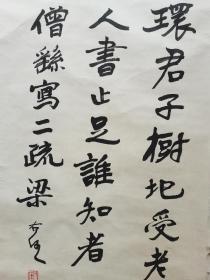 環君子樹圯受老
人書止足誰知者
僧繇寫二疏梁